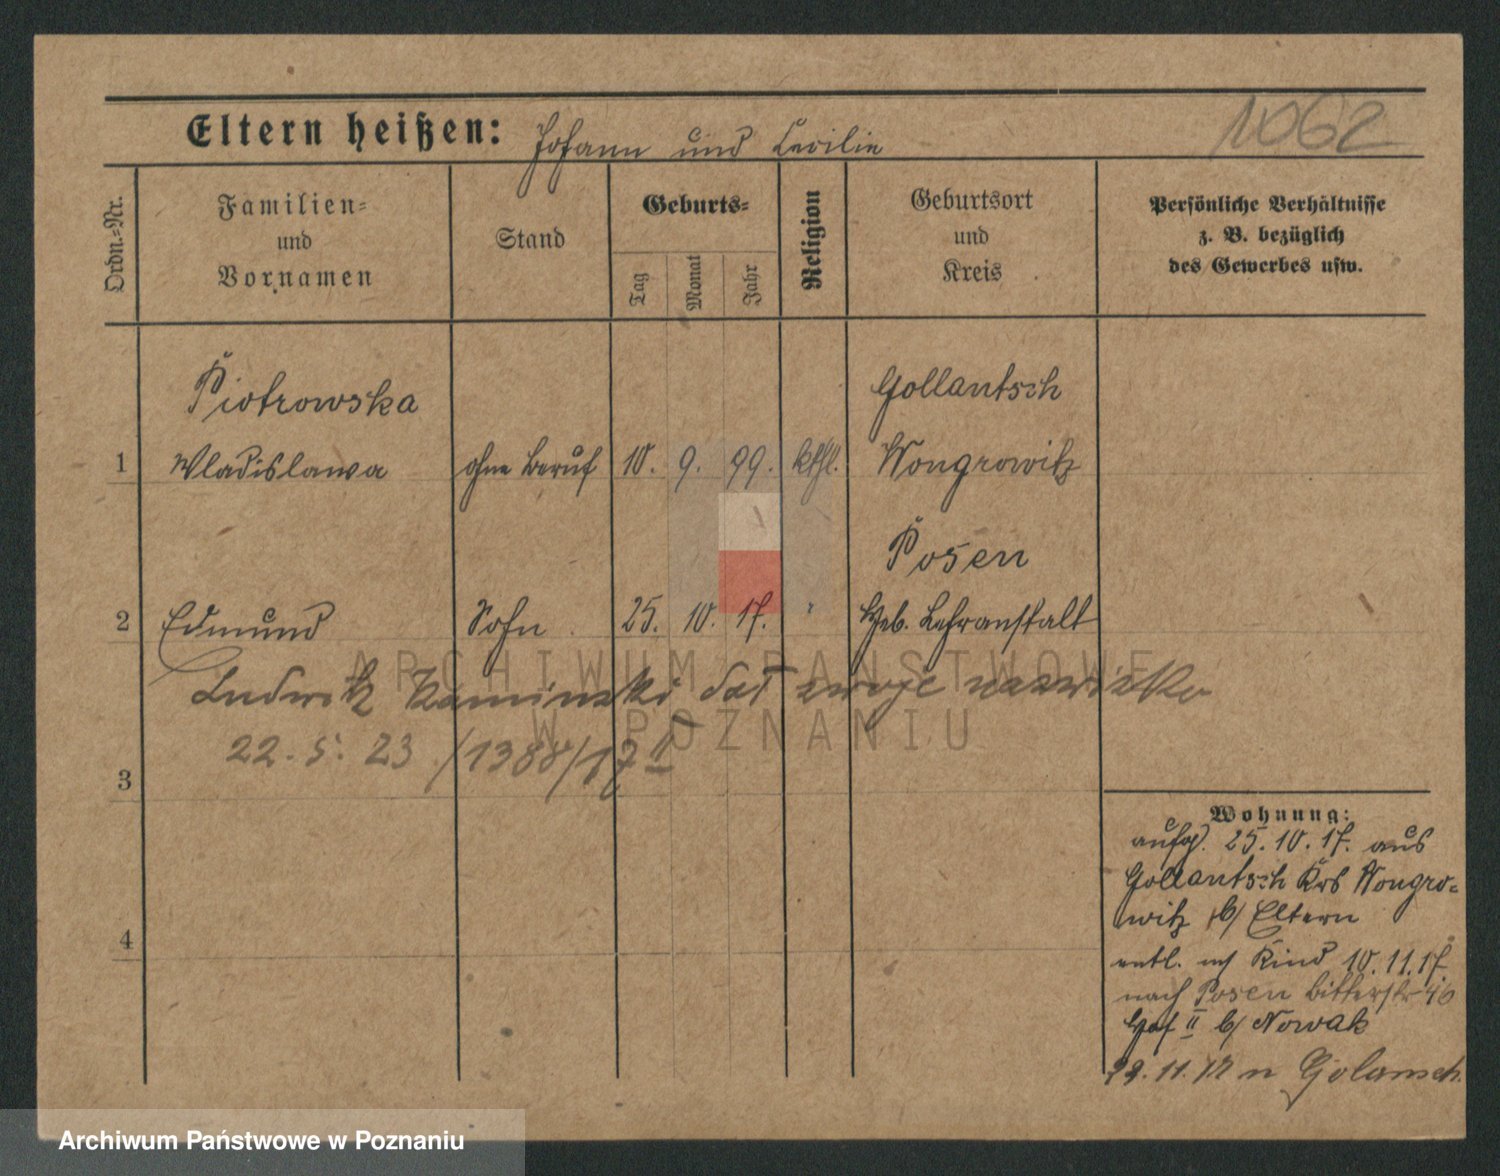 1062
Eltern heißen: Johann und Cecilie
Ordn.-Nr.
Familien-
und
Vornamen
Stand
Geburts-
Tag
Monat
Jahr
Religion
Geburtsort
und
Kreis
Persönliche Verhältnisse
z. B. bezüglich
des Gewerbes usw.
Piotrowska
Gollantsch
1 Wladislawa ohne Beruf 10. 9. 99. kthl. Wongrowitz
Posen
2 Edmund Sohn 25. 10. 17. " Heb. Lehranstalt
Ludwik Kaminski dał swoje nazwisko
22. 5. 23 /1388/17 II
3
4
Wohnung:
aufg. 25. 10. 17. aus
Gollantsch Krs Wongro-
witz b/ Eltern
entl. m Kind 10. 11. 17.
nach Posen Bitterstr 40
Hof II b/ Nowak
22. 11. 17 n Golansch.
ARCHIWUM PAŃSTWOWE
W POZNANIU
Archiwum Państwowe w Poznaniu